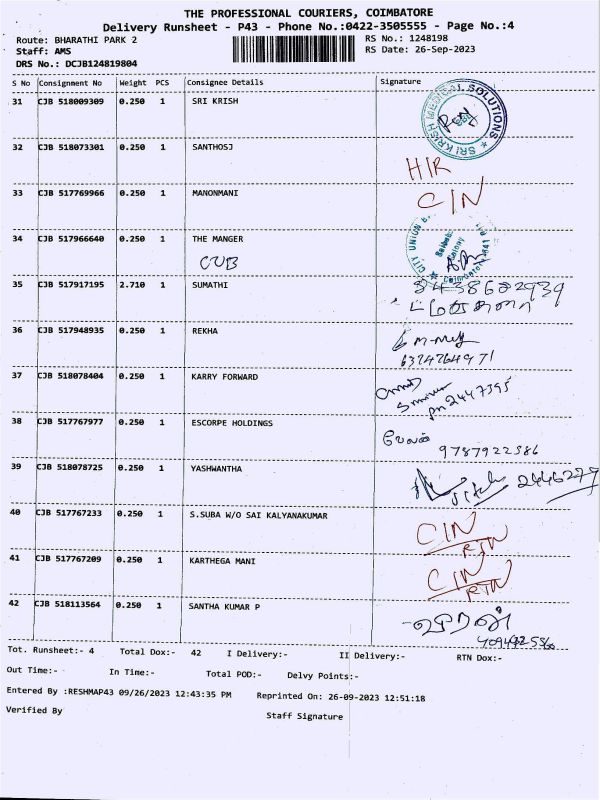 THE PROFESSIONAL COURIERS, COIMBATORE
Delivery Runsheet - P43 - Phone No.:0422-3505555 - Page No.:4
Route: BHARATHI PARK 2 RS No.: 1248198
Staff: AMS RS Date: 26-Sep-2023
DRS No.: DCJB124819804
S No Consignment No Weight PCS Consignee Details Signature
31 CJB 518009309 0.250 1 SRI KRISH
SRI KRISH MEDICAL SOLUTIONS
32 CJB 518073301 0.250 1 SANTHOSJ
HIR
33 CJB 517769966 0.250 1 MANONMANI CIN
34 CJB 517966640 0.250 1 THE MANGER
CITY UNION
CUB
35 CJB 517917195 2.710 1 SUMATHI
36 CJB 517948935 0.250 1 REKHA
6374764971
37 CJB 518078404 0.250 1 KARRY FORWARD
2447395
38 CJB 517767977 0.250 1 ESCORPE HOLDINGS
9787922386
39 CJB 518078725 0.250 1 YASHWANTHA
2446279
40 CJB 517767233 0.250 1 S.SUBA W/O SAI KALYANAKUMAR CIN
RTN
41 CJB 517767209 0.250 1 KARTHEGA MANI CIN
RTN
42 CJB 518113564 0.250 1 SANTHA KUMAR P
Tot. Runsheet:- 4 Total Dox:- 42 I Delivery:- II Delivery:- RTN Dox:-
Out Time:- In Time:- Total POD:- Delvy Points:-
Entered By :RESHMAP43 09/26/2023 12:43:35 PM Reprinted On: 26-09-2023 12:51:18
Verified By Staff Signature